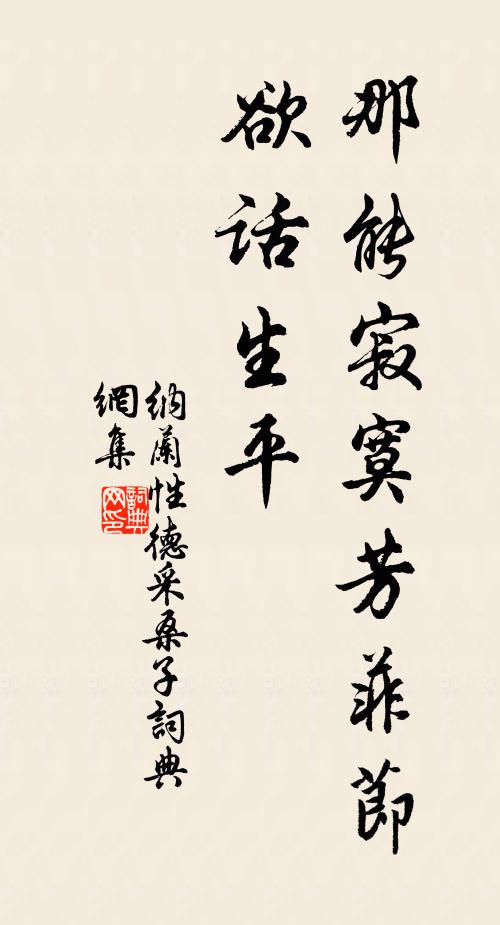 那能寂寞芳菲節
欲话生平
納蘭性德采桑子詞典
網集
詞典
网印